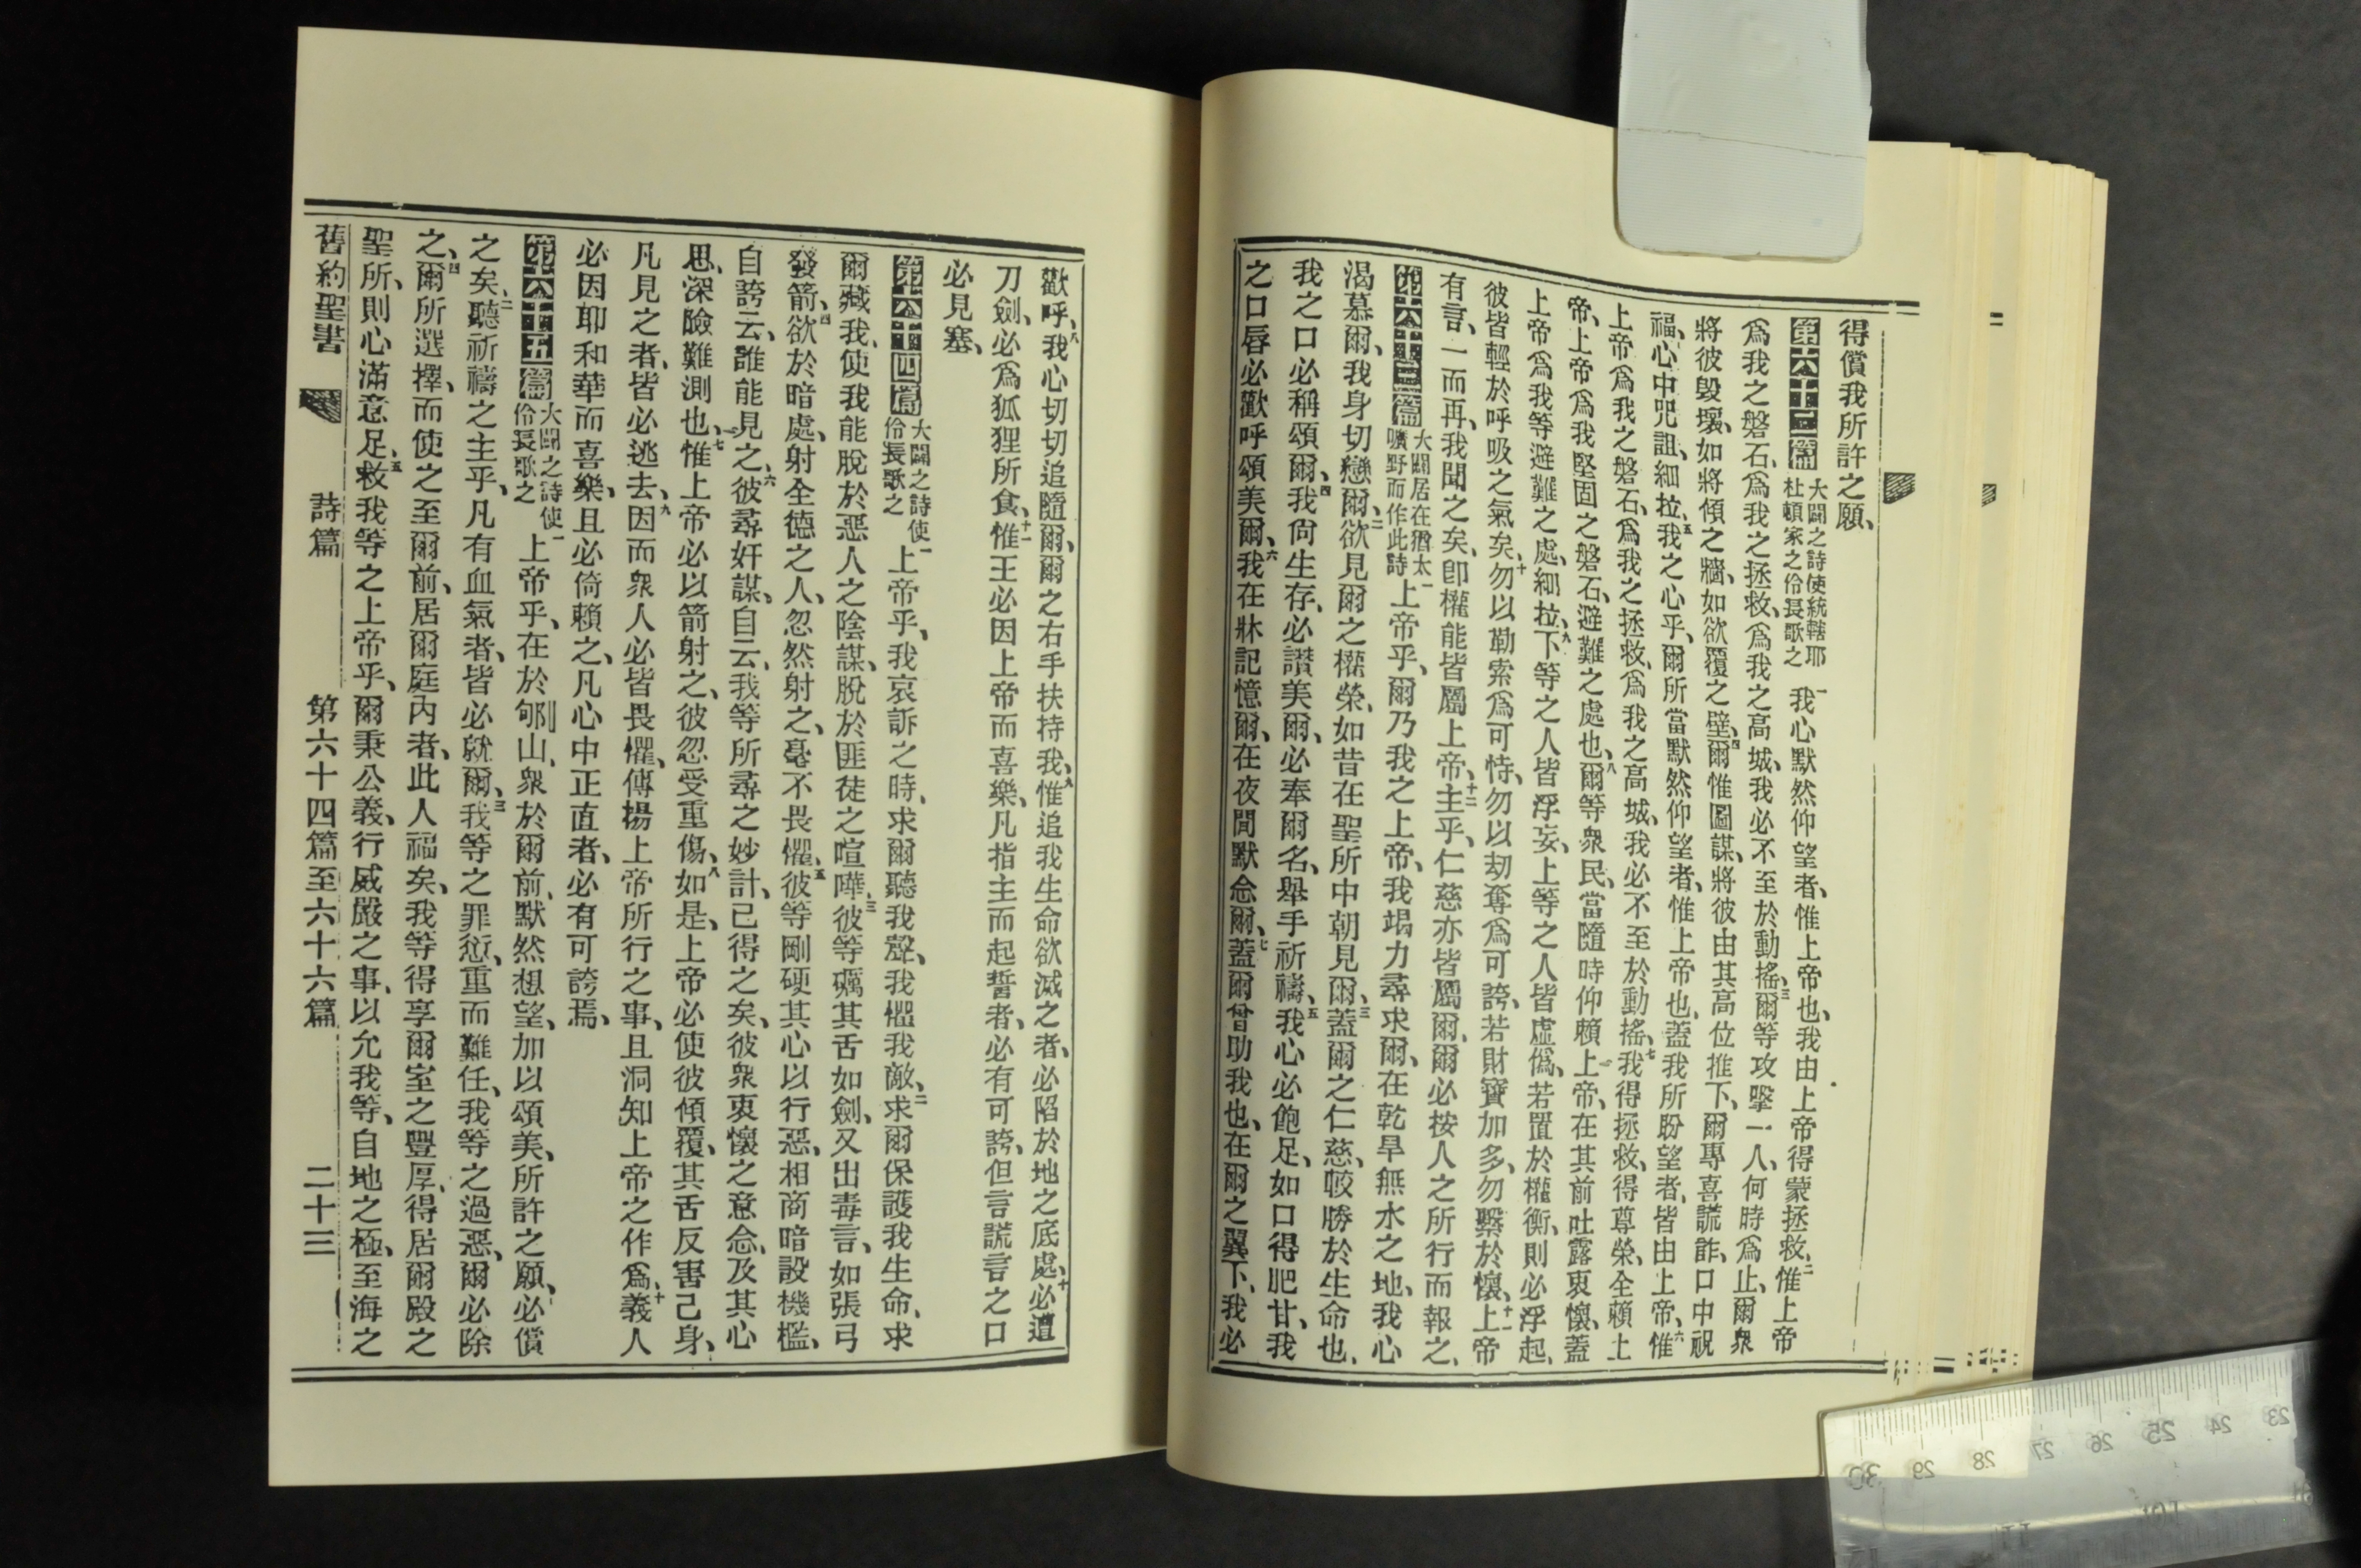 得償我所許之願、
第六十二篇 大闢之詩使統轄耶杜頓家之伶長歌之 一我心默然仰望者、惟上帝也、我由上帝得蒙拯救、二惟上帝
爲我之磐石、爲我之拯救、爲我之高城、我必不至於動搖、三爾等攻擊一人、何時爲止、爾衆
將彼毀壞、如將傾之牆、如欲覆之壁、四爾惟圖謀、將彼由其高位推下、爾專喜謊詐、口中祝
福、心中咒詛、細拉、五我之心乎、爾所當默然仰望者、惟上帝也、蓋我所盼望者、皆由上帝、六惟
上帝爲我之磐石、爲我之拯救、爲我之高城、我必不至於動搖、七我得拯救、得尊榮、全賴上
帝、上帝爲我堅固之磐石、避難之處也、八爾等衆民、當隨時仰賴上帝、在其前吐露衷懷、蓋
上帝爲我等避難之處、細拉、九下等之人皆浮妄、上等之人皆虛僞、若置於權衡、則必浮起、
彼皆輕於呼吸之氣矣、十勿以勒索爲可恃、勿以刼奪爲可誇、若財寶加多、勿繫於懷、十一上帝
有言、一而再、我聞之矣、卽權能皆屬上帝、十二主乎、仁慈亦皆屬爾、爾必按人之所行而報之、
第六十三篇 大闢居在猶太曠野而作此詩 一上帝乎、爾乃我之上帝、我竭力尋求爾、在乾旱無水之地、我心
渴慕爾、我身切戀爾、二欲見爾之權榮、如昔在聖所中朝見爾、三蓋爾之仁慈、較勝於生命也、
我之口必稱頌爾、四我尙生存、必讚美爾、必奉爾名、舉手祈禱、五我心必飽足、如口得肥甘、我
之口唇必歡呼頌美爾、六我在牀記憶爾、在夜間默念爾、七蓋爾曾助我也、在爾之翼下、我必
歡呼、八我心切切追隨爾、爾之右手扶持我、九惟追我生命欲滅之者、必陷於地之底處、十必遭
刀劍、必爲狐狸所食、十一惟王必因上帝而喜樂、凡指主而起誓者、必有可誇、但言謊言之口
必見塞、
第六十四篇 大闢之詩使伶長歌之 一上帝乎、我哀訴之時、求爾聽我聲、我懼我敵、二求爾保護我生命、求
爾藏我、使我能脫於惡人之陰謀、脫於匪徒之喧嘩、三彼等礪其舌如劍、又出毒言、如張弓
發箭、四欲於暗處、射全德之人、忽然射之、毫不畏懼、五彼等剛硬其心以行惡、相商暗設機檻、
自誇云、誰能見之、六彼尋奸謀、自云、我等所尋之妙計、已得之矣、彼衆衷懷之意念、及其心
思、深險難測也、七惟上帝必以箭射之、彼忽受重傷、八如是、上帝必使彼傾覆、其舌反害己身、
凡見之者、皆必逃去、九因而衆人必皆畏懼、傳揚上帝所行之事、且洞知上帝之作爲、十義人
必因耶和華而喜樂、且必倚賴之、凡心中正直者、必有可誇焉、
第六十五篇 大闢之詩使伶長歌之 一上帝乎、在於郇山、衆於爾前、默然想望、加以頌美、所許之願、必償
之矣、二聽祈禱之主乎、凡有血氣者、皆必就爾、三我等之罪愆、重而難任、我等之過惡、爾必除
之、四爾所選擇、而使之至爾前、居爾庭內者、此人福矣、我等得享爾室之豐厚、得居爾殿之
聖所、則心滿意足、五救我等之上帝乎、爾秉公義、行威嚴之事、以允我等、自地之極、至海之
舊約聖書 詩篇 第六十四篇至六十六篇 二十三
23 24 25 26 27 28 29 30